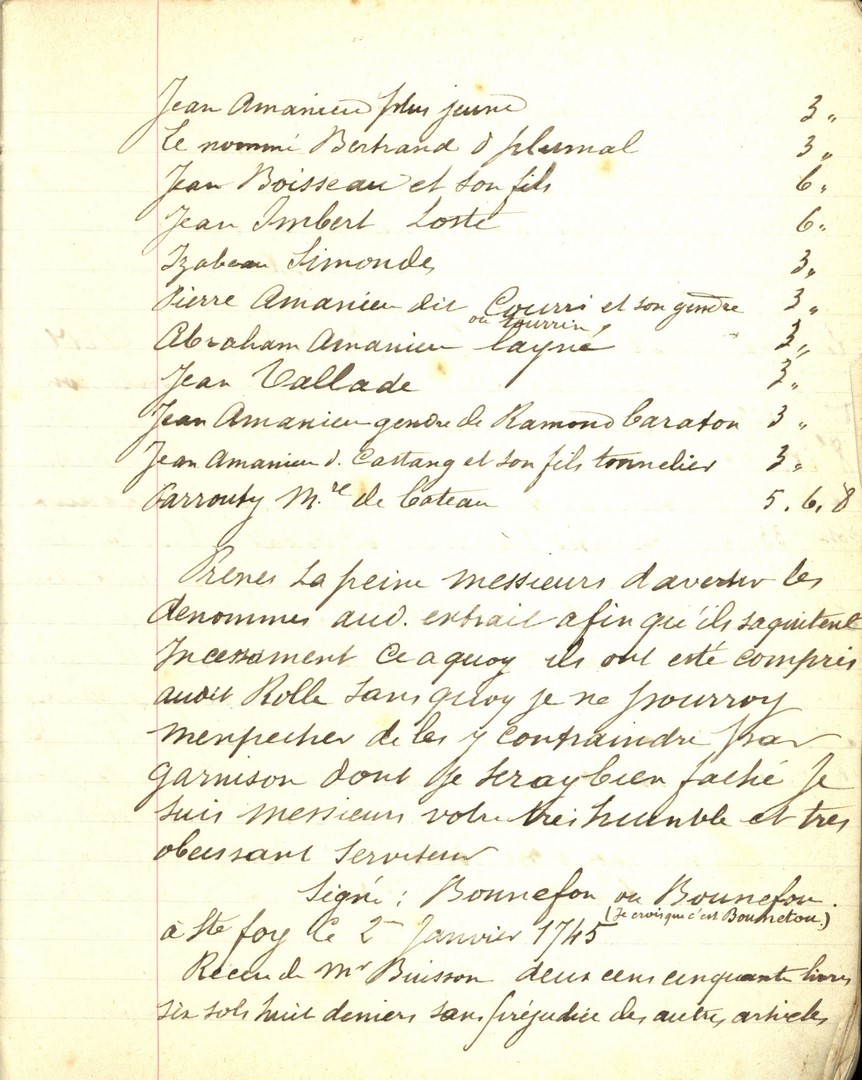 Jean Amanieu plus jeune 3 „
Le nommé Bertrand d plumal 3 „
Jean Boisseau et son fils 6 „
Jean Imbert Loste 6 „
Izabeau Simonde 3 „
Pierre Amanieu dit Courri et son gendre 3 „
ou tourrin
Abraham Amanieu layné 3 „
Jean Vallade 3 „
Jean Amanieu gendre de Ramond Caraton 3 „
Jean Amanieu d. Castang et son fils tonnelier 3 „
Parrouty M.re de bateau 5 . 6 . 8
Prenes la peine messieurs davertir les
denommes aud. extrait afin qu'ils saquitent
Incessament ce a quoy ils ont esté compris
audit Rolle sans quoy je ne pourroy
menpecher de les y contraindre par
garnison dont je seray bien faché Je
suis messieurs votre tres humble et tres
obeissant serviteur
Signé : Bonnefon ou Bounefon.
(Je crois que c'est Bounetou.)
à Ste foy le 2 Janvier 1745
Receu de Mr Buisson deux cens cinquante livres
six sols huit deniers sans préjudice des autres articles